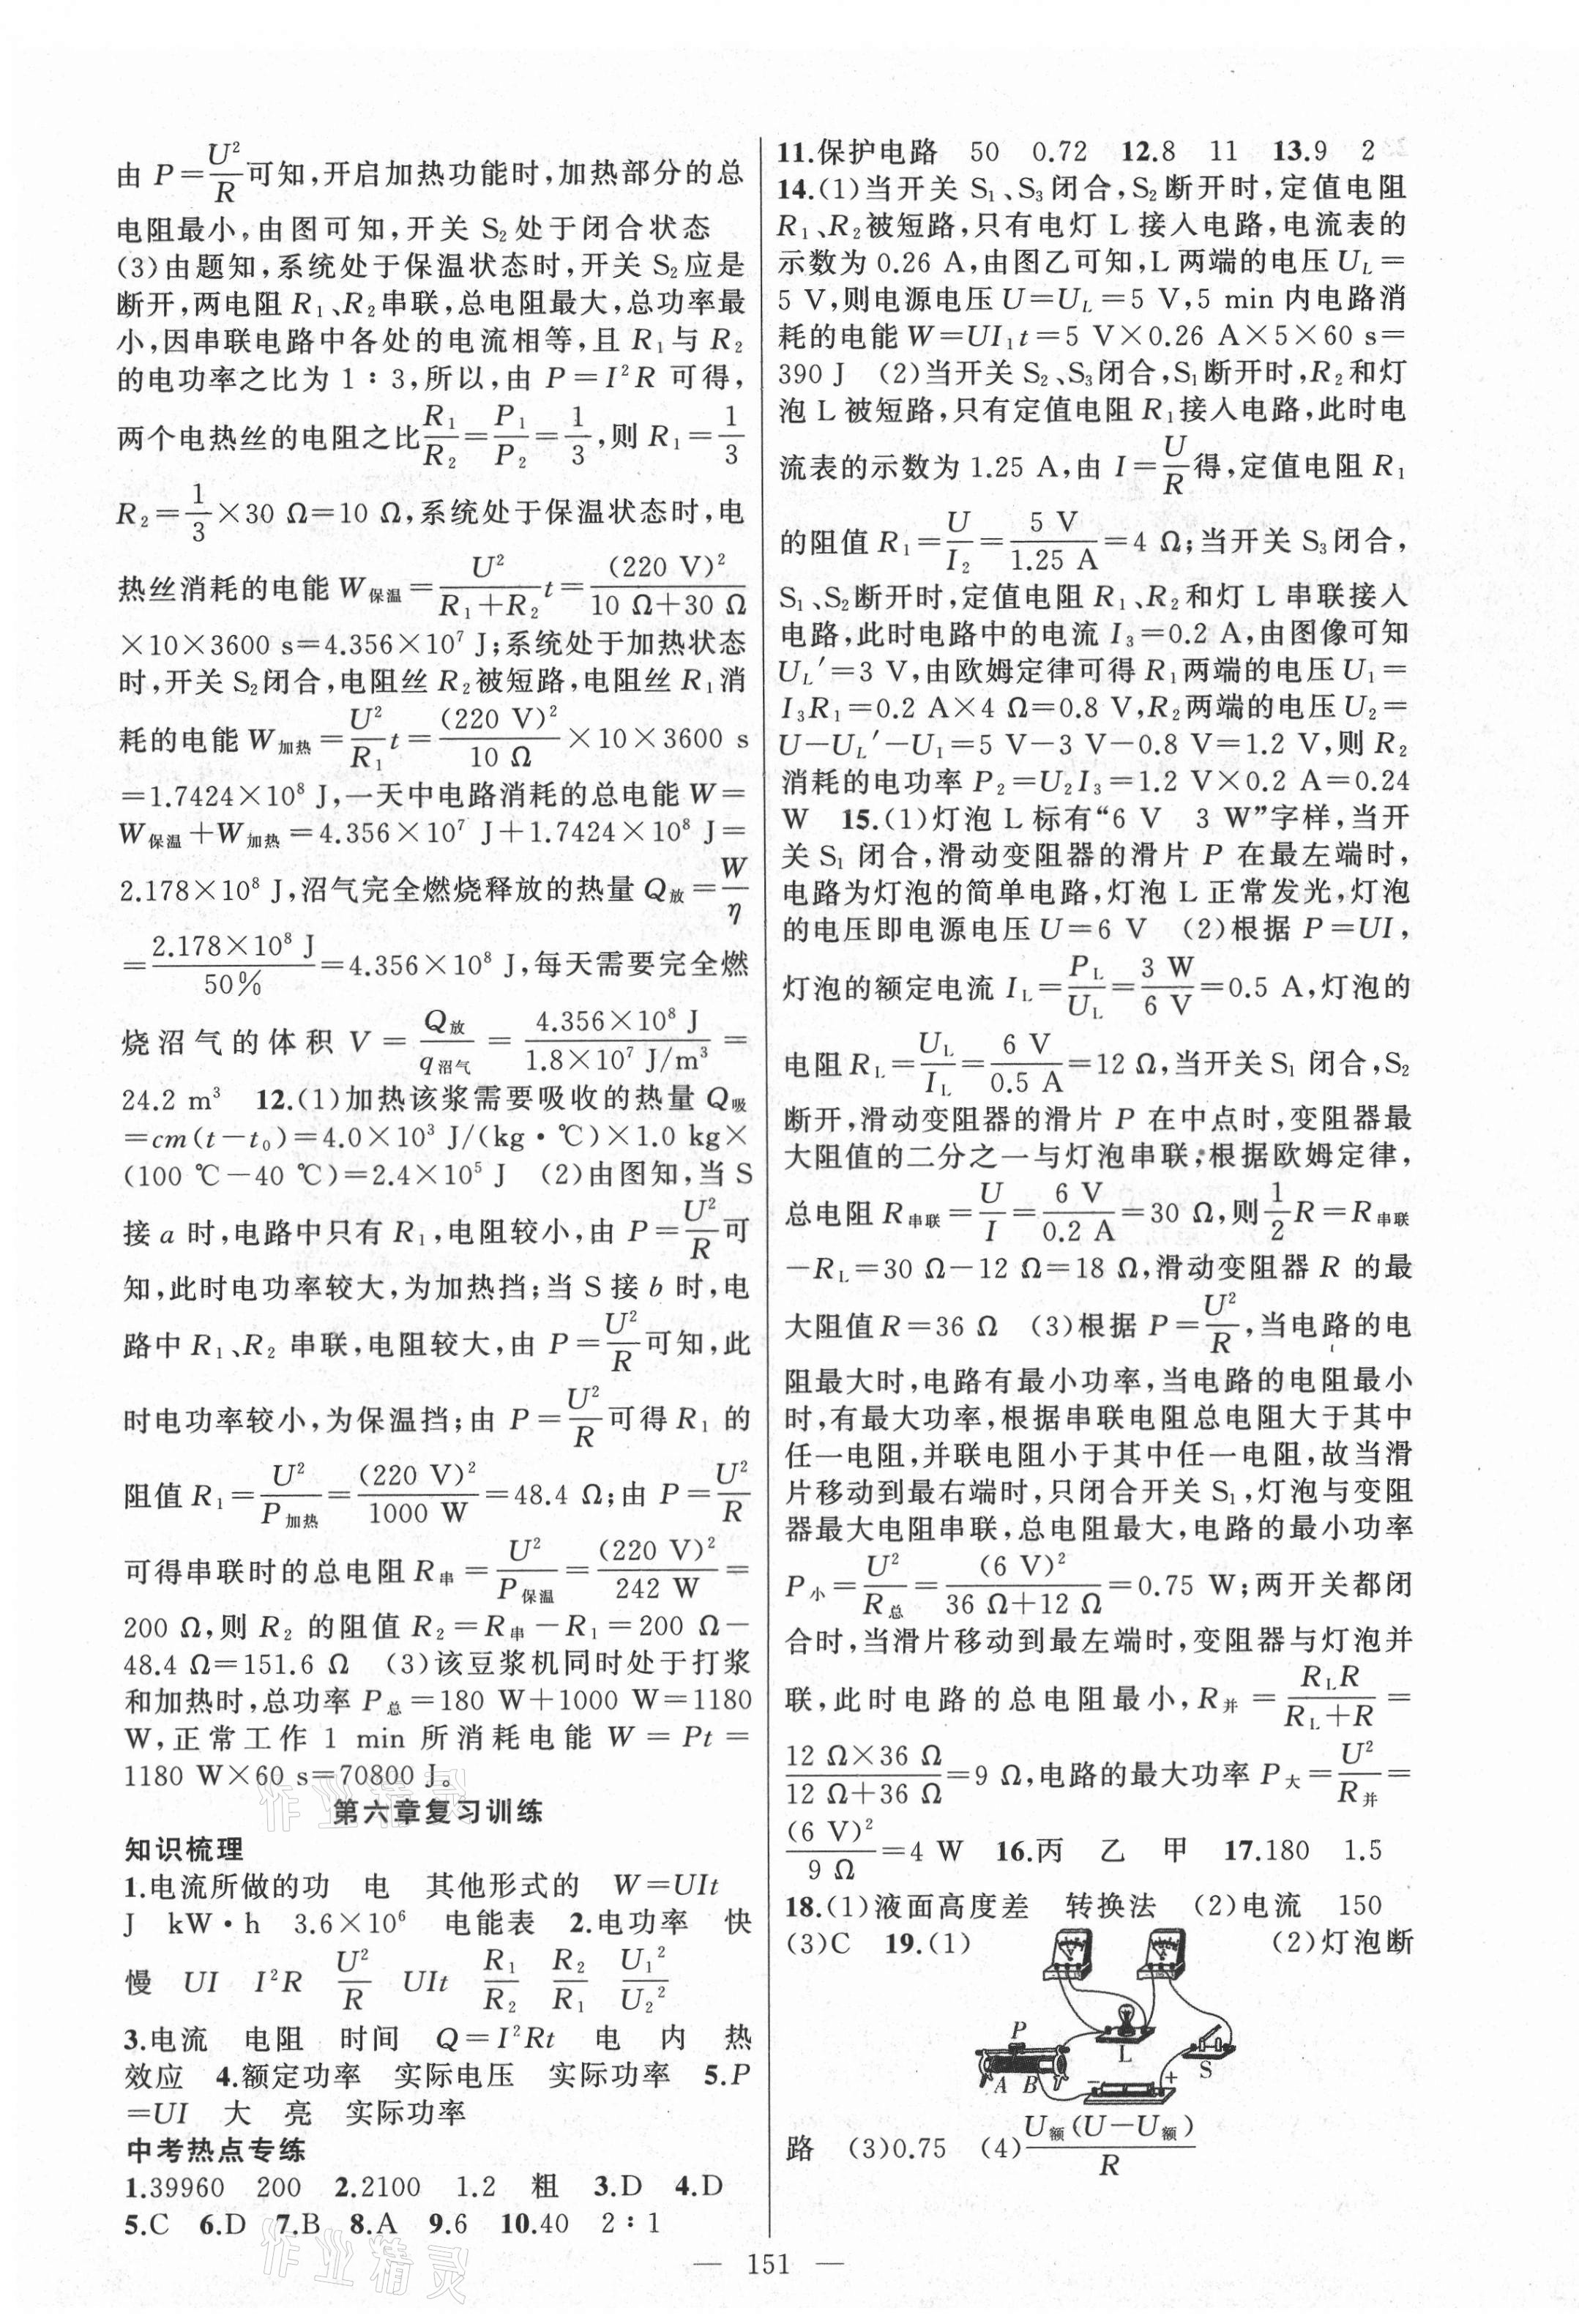 由 P=U²/R 可知,开启加热功能时,加热部分的总
电阻最小,由图可知,开关 S₂ 处于闭合状态
(3)由题知,系统处于保温状态时,开关 S₂ 应是
断开,两电阻 R₁、R₂ 串联,总电阻最大,总功率最
小,因串联电路中各处的电流相等,且 R₁ 与 R₂
的电功率之比为 1∶3,所以,由 P=I²R 可得,
两个电热丝的电阻之比 R₁/R₂=P₁/P₂=1/3,则 R₁=1/3
R₂=1/3×30 Ω=10 Ω,系统处于保温状态时,电
热丝消耗的电能 W保温=U²/(R₁+R₂)t=(220 V)²/(10 Ω+30 Ω)
×10×3600 s=4.356×10⁷ J;系统处于加热状态
时,开关 S₂闭合,电阻丝 R₂被短路,电阻丝 R₁消
耗的电能 W加热=U²/R₁t=(220 V)²/10 Ω×10×3600 s
=1.7424×10⁸ J,一天中电路消耗的总电能 W=
W保温+W加热=4.356×10⁷ J+1.7424×10⁸ J=
2.178×10⁸ J,沼气完全燃烧释放的热量 Q放=W/η
=2.178×10⁸ J/50%=4.356×10⁸ J,每天需要完全燃
烧沼气的体积 V=Q放/q沼气=4.356×10⁸ J/1.8×10⁷ J/m³=
24.2 m³ 12.(1)加热该浆需要吸收的热量 Q吸
=cm(t-t₀)=4.0×10³ J/(kg·℃)×1.0 kg×
(100 ℃-40 ℃)=2.4×10⁵ J (2)由图知,当 S
接 a 时,电路中只有 R₁,电阻较小,由 P=U²/R 可
知,此时电功率较大,为加热挡;当 S 接 b 时,电
路中 R₁、R₂ 串联,电阻较大,由 P=U²/R 可知,此
时电功率较小,为保温挡;由 P=U²/R 可得 R₁ 的
阻值 R₁=U²/P加热=(220 V)²/1000 W=48.4 Ω;由 P=U²/R
可得串联时的总电阻 R串=U²/P保温=(220 V)²/242 W=
200 Ω,则 R₂ 的阻值 R₂=R串-R₁=200 Ω-
48.4 Ω=151.6 Ω (3)该豆浆机同时处于打浆
和加热时,总功率 P总=180 W+1000 W=1180
W,正常工作 1 min 所消耗电能 W=Pt=
1180 W×60 s=70800 J。
第六章复习训练
知识梳理
1.电流所做的功 电 其他形式的 W=UIt
J kW·h 3.6×10⁶ 电能表 2.电功率 快
慢 UI I²R U²/R UIt R₁/R₂ R₂/R₁ U₁²/U₂²
3.电流 电阻 时间 Q=I²Rt 电 内 热
效应 4.额定功率 实际电压 实际功率 5.P
=UI 大 亮 实际功率
中考热点专练
1.39960 200 2.2100 1.2 粗 3.D 4.D
5.C 6.D 7.B 8.A 9.6 10.40 2∶1
11.保护电路 50 0.72 12.8 11 13.9 2
14.(1)当开关 S₁、S₃闭合,S₂断开时,定值电阻
R₁、R₂被短路,只有电灯 L 接入电路,电流表的
示数为 0.26 A,由图乙可知,L 两端的电压 U_L=
5 V,则电源电压 U=U_L=5 V,5 min 内电路消
耗的电能 W=UI₁t=5 V×0.26 A×5×60 s=
390 J (2)当开关 S₂、S₃闭合,S₁断开时,R₂和灯
泡 L 被短路,只有定值电阻 R₁接入电路,此时电
流表的示数为 1.25 A,由 I=U/R 得,定值电阻 R₁
的阻值 R₁=U/I₂=5 V/1.25 A=4 Ω;当开关 S₃闭合,
S₁、S₂断开时,定值电阻 R₁、R₂和灯 L 串联接入
电路,此时电路中的电流 I₃=0.2 A,由图像可知
U_L′=3 V,由欧姆定律可得 R₁两端的电压 U₁=
I₃R₁=0.2 A×4 Ω=0.8 V,R₂两端的电压 U₂=
U-U_L′-U₁=5 V-3 V-0.8 V=1.2 V,则 R₂
消耗的电功率 P₂=U₂I₃=1.2 V×0.2 A=0.24
W 15.(1)灯泡 L 标有“6 V 3 W”字样,当开
关 S₁ 闭合,滑动变阻器的滑片 P 在最左端时,
电路为灯泡的简单电路,灯泡 L 正常发光,灯泡
的电压即电源电压 U=6 V (2)根据 P=UI,
灯泡的额定电流 I_L=P_L/U_L=3 W/6 V=0.5 A,灯泡的
电阻 R_L=U_L/I_L=6 V/0.5 A=12 Ω,当开关 S₁ 闭合,S₂
断开,滑动变阻器的滑片 P 在中点时,变阻器最
大阻值的二分之一与灯泡串联,根据欧姆定律,
总电阻 R串联=U/I=6 V/0.2 A=30 Ω,则1/2R=R串联
-R_L=30 Ω-12 Ω=18 Ω,滑动变阻器 R 的最
大阻值 R=36 Ω (3)根据 P=U²/R,当电路的电
阻最大时,电路有最小功率,当电路的电阻最小
时,有最大功率,根据串联电阻总电阻大于其中
任一电阻,并联电阻小于其中任一电阻,故当滑
片移动到最右端时,只闭合开关 S₁,灯泡与变阻
器最大电阻串联,总电阻最大,电路的最小功率
P小=U²/R总=(6 V)²/(36 Ω+12 Ω)=0.75 W;两开关都闭
合时,当滑片移动到最左端时,变阻器与灯泡并
联,此时电路的总电阻最小,R并=R_LR/(R_L+R)=
12 Ω×36 Ω/(12 Ω+36 Ω)=9 Ω,电路的最大功率 P大=U²/R并=
(6 V)²/9 Ω=4 W 16.丙 乙 甲 17.180 1.5
18.(1)液面高度差 转换法 (2)电流 150
(3)C 19.(1) (2)灯泡断
V A
P L S
A B - +
路 (3)0.75 (4)U额(U-U额)/R
— 151 —
作业精灵
作业精灵